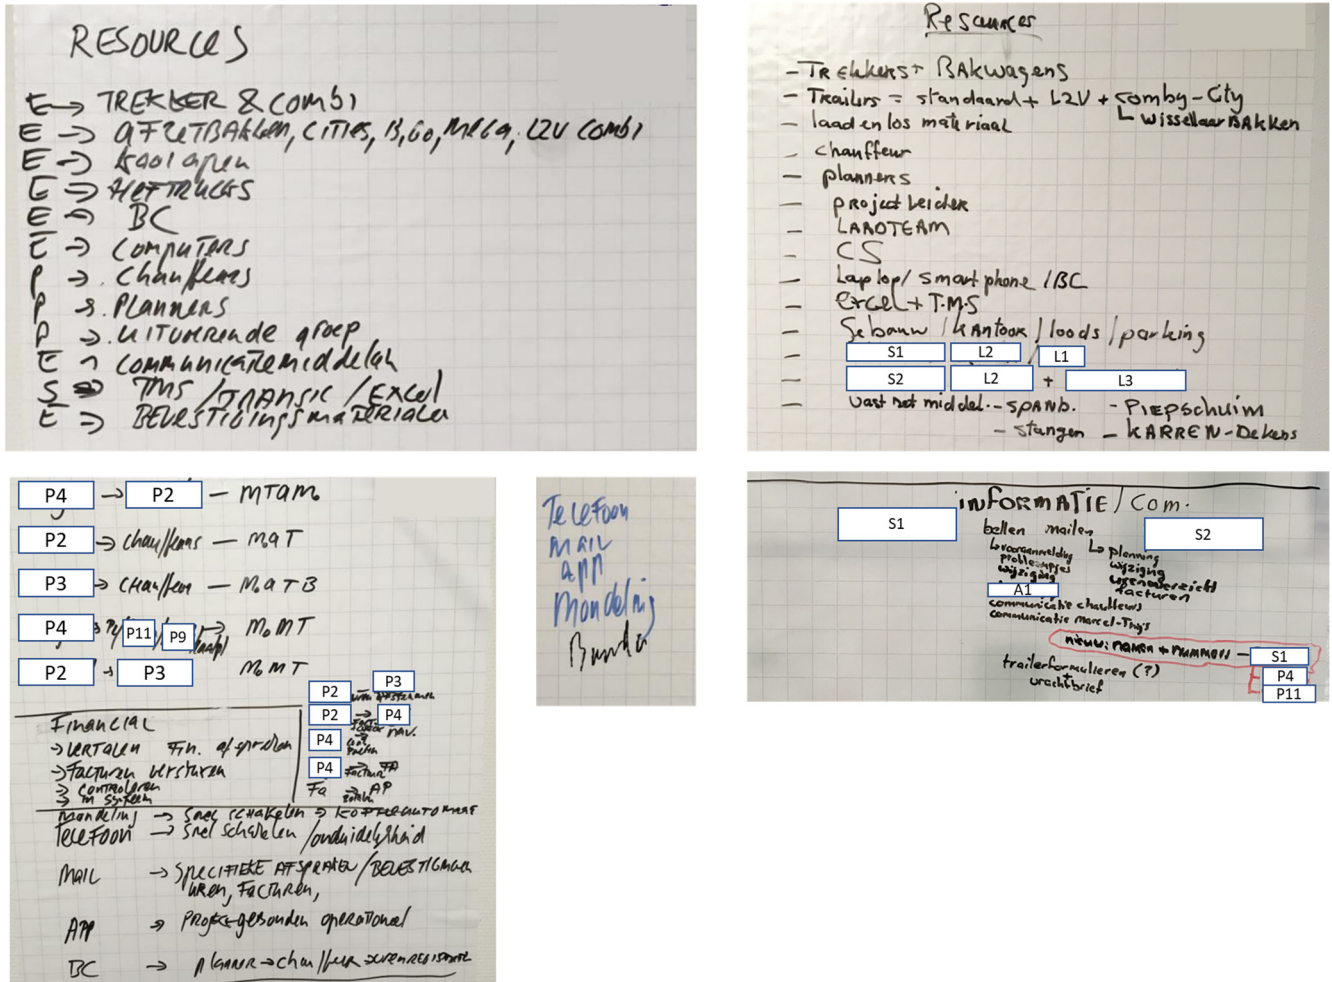 RESOURCES
E → TREKKER & COMBI
E → AFZETBAKKEN, CITIES, B, GO, MEGA, L2V COMBI
E → kooiapen
E → HEFTRUCKS
E → BC
E → COMPUTERS
P → Chauffeurs
P → PLANNERS
P → UITVOERENDE groep
E → COMMUNICATIEMIDDELEN
S → TMS / TRANSIC / EXCEL
E → BEVESTIGINGSMATERIALEN
Resources
- TREKKers + BAKwagens
- Trailers = standaard + L2V + comby-City
↳ wissellaarBAKken
- laad en los materiaal
- chauffeur
- planners
- project Leider
- LAADTEAM
- CS
- Laptop / Smartphone / BC
- excel + T.M.S
- Gebouw / KAntoor / loods / parking
- S1 L2 / L1
- S2 L2 + L3
- vast zet middel. - SPANb. - PIEPschuim
- stangen - KARREN - Dekens
P4 → P2 - MTAM.
P2 → chauffeurs - MAT
P3 → CHAuffeur - M.A T B
P4 → P11 P9 → M.MT
P2 → P3 M.MT
P2 - P3
P2 → P4 NAV.
P4
P4 → FA
Factuur
Fa → AP
FINANCIAL
→ VERTALEN FIN. afspraken
→ Facturen versturen
→ CONTROLEREN
→ IN SYSTEEM
Mondeling → Snel schakelen → KOFFIEAUTOMAAT
TELEFOON → Snel schakelen / onduidelijkheid
MAIL → SPECIFIEKE AFSPRAKEN / BEVESTIGINGEN
UREN, FACTUREN,
APP → PROJectgebonden operationeel
BC → planner → chauffeur → URENREGISTRATIE
TELEFOON
MAIL
APP
Mondeling
INFORMATIE / Com.
S1
bellen mailen
S2
↳ vooraanmelding ↳ planning
probleempjes wijziging
wijziging urenoverzicht
facturen
A1
communicatie chauffeurs
communicatie Marcel-Thijs
nieuw: namen + nummers - S1
P4
P11
trailerformulieren (?)
+
vrachtbrief